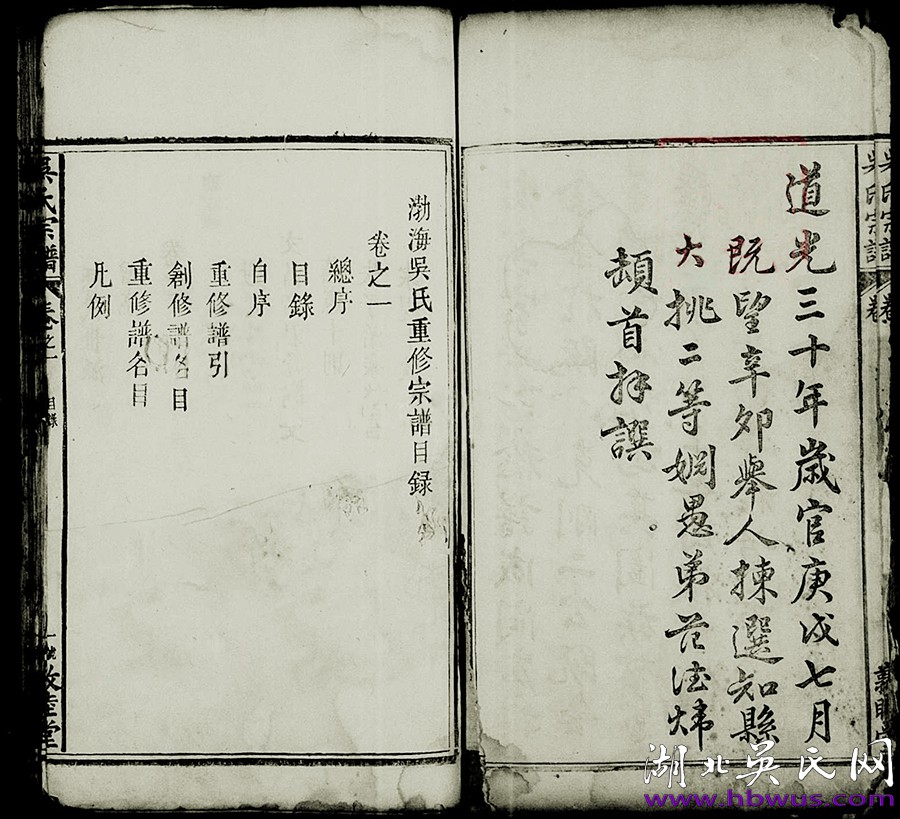 道光三十年歲官庚戌七月
既望辛卯舉人揀選知縣
大挑二等姻愚弟范德煒
頓首拜譔
渤海吳氏重修宗譜目録
卷之一
總序
目錄
自序
重修譜引
創修譜名目
重修譜名目
凡例
吳氏宗譜
卷之一
目錄
敦睦堂
吳氏宗譜
湖北吴氏网
www.hbwus.com